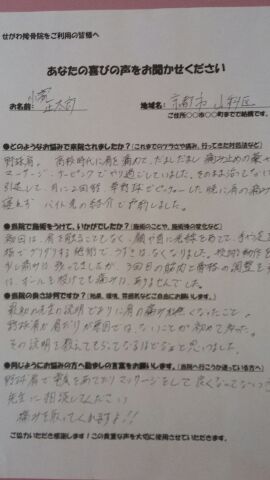 せがわ接骨院をご利用の皆様へ
あなたの喜びの声をお聞かせください
お名前: 正太郎
地域名: 京都市 山科区
ご住所○○市○○町までで結構です。
●どのようなお悩みで来院されましたか?(これまでのツラさや痛み、行ってきた対処法など)
野球肩。高校時代に肩を痛めて、だましだまし痛み止めの薬や
マッサージ・テーピングでやり過ごしていました。そのまま治らないで
引退して、月に2回程、草野球でピッチャーした晩に肩の痛みで
寝れず バイト先の紹介で予約しました。
●当院で施術をうけて、いかがでしたか?(施術のことや、施術後の変化など)
初回は、肩を触ることもなく、顔や首に光線をあてて、手や足を
指でグリグリする施術で、うずきはなくなりました。投球動作を
少し痛みは残ってましたが、3回目の筋肉と骨格の調整をすれ
ば、ボールを投げても痛みは、ありませんでした。
●当院の良さは何ですか?(効果、環境、雰囲気などご自由にお願いします。)
最初の先生の説明どおりに肩の痛みが無くなったこと。
野球肩が肩だけが原因では、ないことが初めて知った。
その説明を教えてもらってなるほどなぁと思いました。
●同じようにお悩みの方へ励ましの言葉をお願いします。(当院へ行こうか迷っている方へ)
野球肩で電気をあてたりマッサージをして 良くなってないっ
先生に相談してください
痛みを取ってくれますよ!!
ご協力いただき感謝します!この貴重な声を大切に使用させていただきます。